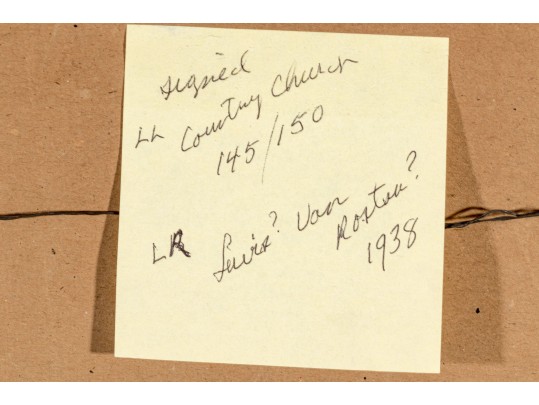 signed
LL Country Church
145/150
LR Luis? Van
Roston?
1938